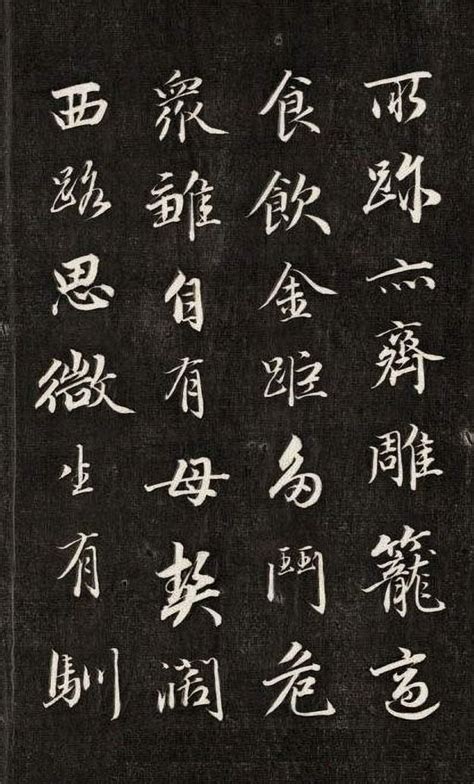 所跡亦齊雕籠高
食飲金距多鬥危
眾雛自有母契闊
西路思微生有馴